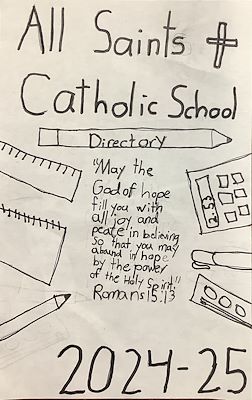 All Saints
Catholic School
Directory
"May the
God of hope
fill you with
all joy and
peace in believing
so that you may
abound in hope
by the power
of the Holy Spirit."
Romans 15:13
2024-25